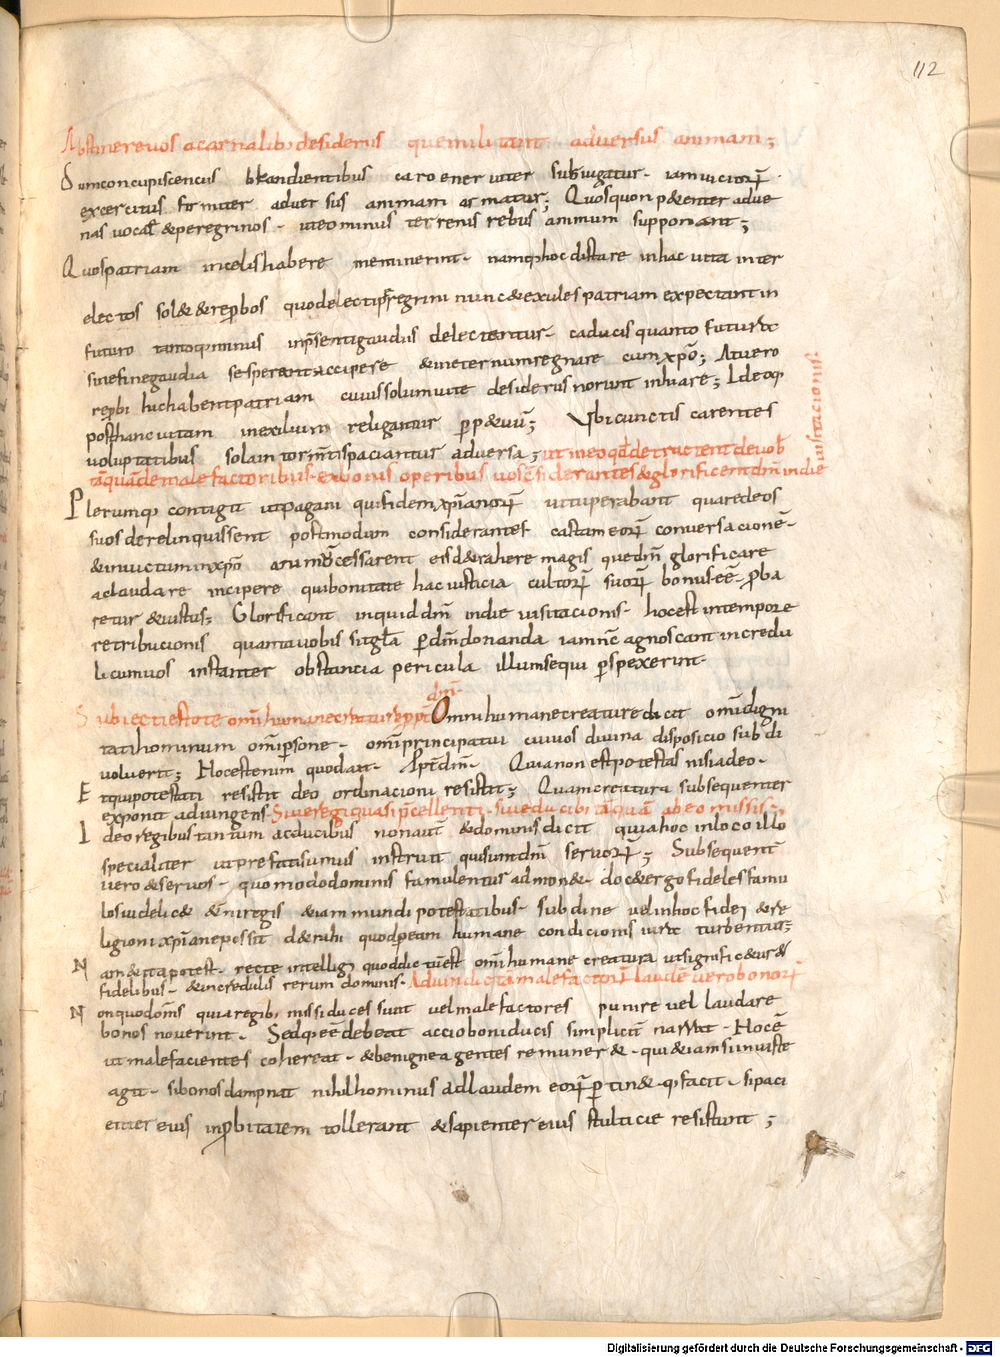 112
Abstinere vos a carnalib; desideriis que militant adversus animam;
Dum concupiscenciis blandientibus caro enerviter subiugatur. iam viciorū
excercitus fortiter adversus animam armatur; Quos quoq; p&enter adve
nas vocat & peregrinos. ut eo minus terrenis rebus animum supponant;
Quos patriam in celis habere meminerint. namq; hoc distare in hac vita inter
electos sol& & reprobos quod electi peregrini nunc & exules patriam expectant in
futuro tantoq; minus in presenti gaudiis delectentur. caducis quanto futura
sine fine gaudia se sperent accipere & in eternum regnare cum xpō; At vero
reprobi hic habent patriam cuius solum vite desideriis norunt inhiare; Ideoq;
post hanc vitam in exilium religantur perp&uū; Ubi cunctis carentes
voluptatibus sola in tormentis paciantur adversa; ut in eo qd detractent de vob
tāquā de malefactoribus. ex bonis operibus vos considerantes & glorificent dm̄ in die
visitacionis.
Plerumq; contigit ut pagani qui fidem xpianorū vituperabant quare deos
suos derelinquissent postmodum considerantes castam eorū conversacionē.
& invictum in xpō animū cessarent eis d&rahere magis quē dm̄ glorificare
ac laudare incipere qui bonitate hac iusticia cultorū suorū bonus eē. proba
retur & iustus; Glorificant inquid dm̄ in die visitacionis. hoc est in tempore
retribucionis quanta vobis sit gla per dm̄ donanda iam nc̄ agnoscant increduli
li cum vos instanter obstancia pericula illum sequi perspexerint.
dm̄.
Subiecti estote omī humane creature pp̄t Omni humane creature dicit omī digni
tati hominum omī persone. omī principatui cui vos divina disposicio subdi
voluerit; Hoc est enim quod ait. Ppt dm̄. Quia non est potestas nisi a deo.
Et qui potestati resistit deo ordinacioni resistit; Quam creatura subsequenter
exponit adiungens. Sive regi quasi p̄cellenti. sive ducib; tāquā ab eo missis.
Ideo regibus tantum ac ducibus non aut̄ & dominis dicit quia hoc in loco illo
specialiter ut prefati sumus instruit qui sunt dm̄ servorū; Subsequent̄
vero & servos. quomodo dominis famulentus admon&. doc& ergo fideles famu
los videlic& & n̄i regis & iam mundi potestatibus. subdi ne vel in hoc fidei & re
ligioni xpiane possit d&rahi quod per eam humane condicionis iura turbentur;
Nam & ita potest. recte intelligi quod dictū est omī humane creatura ut significet & vos &
fidelibus. & incredulis rerum dominis. Ad vindictā malefactorū laudē vero bonorū
Non quod om̄s qui a regib; missi duces sunt vel malefactores punire vel laudare
bonos noverint. Sed q; eē debeat accio boni ducis simplicit̄ narrat. Hoc ē
ut malefacientes cohereat. & benigne agentes remuner&. qui & iam si iniuste
agit. si bonos dampnat nihilhominus ad laudem eorū pertin& q; facit. si paci
enter eius inprobitatem tollerant & sapienter eius stulticie resistunt;
Digitalisierung gefördert durch die Deutsche Forschungsgemeinschaft - DFG